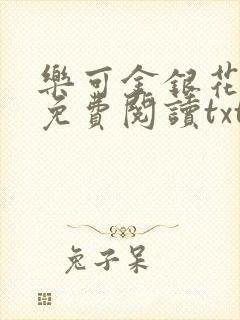 樂可金銀花
免費閱讀txt
兔子呆